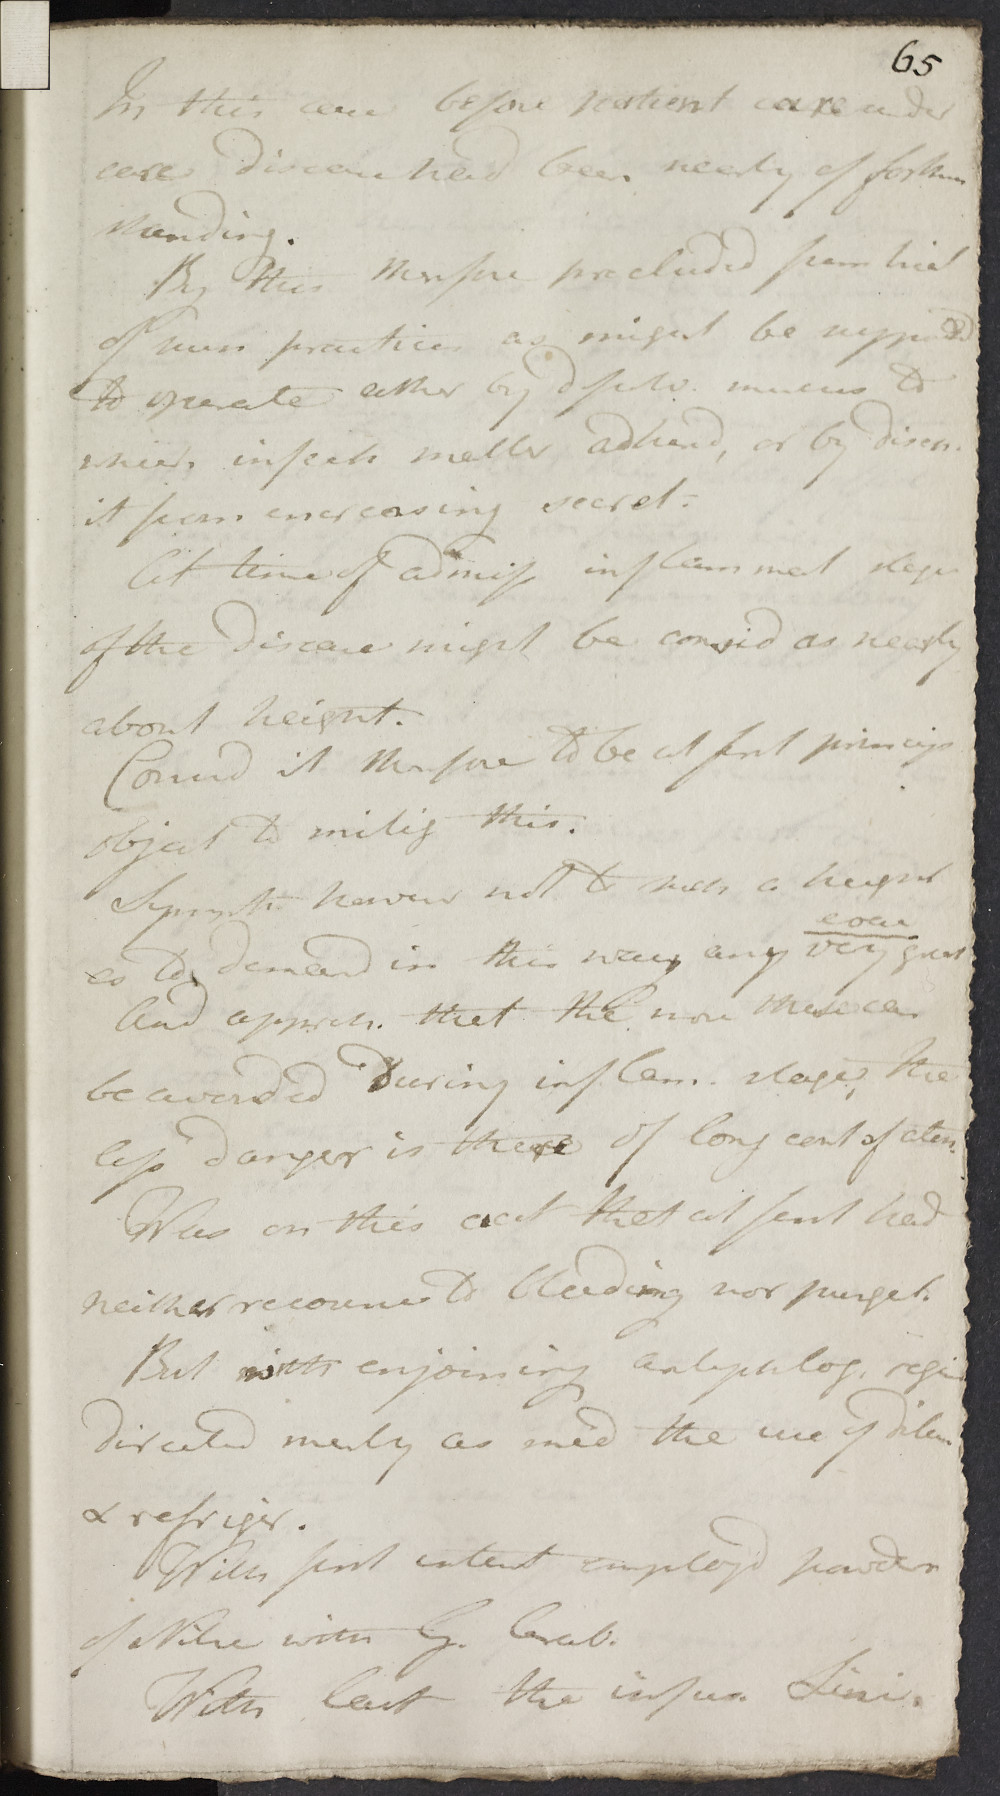 65
In this case before patient came under
care disease had been nearly of
standing.
By this therefore precluded from trial
of such practices as might be supposed
to operate either by dissolv. mucus to
which infect. matter adhered, or by
it from encreasing secret.
At time of admiss inflammat stage
of the disease might be consid as nearly
about height.
Consid it therefore to be at first princip
object to mitig this.
Sympt. however not to such a height
evac
as to demand in this way any very great
And appreh. that the more these can
be avoided During inflam. stage, the
less danger is there of long cont of
Was on this acct that at first had
neither recourse to bleeding nor purgat.
But with enjoining antiphlog. regim
directed merly as med the use of diluen
& refriger.
With first intent employd powder
of Nitre with G. Arab.
With last the infus. Lini.